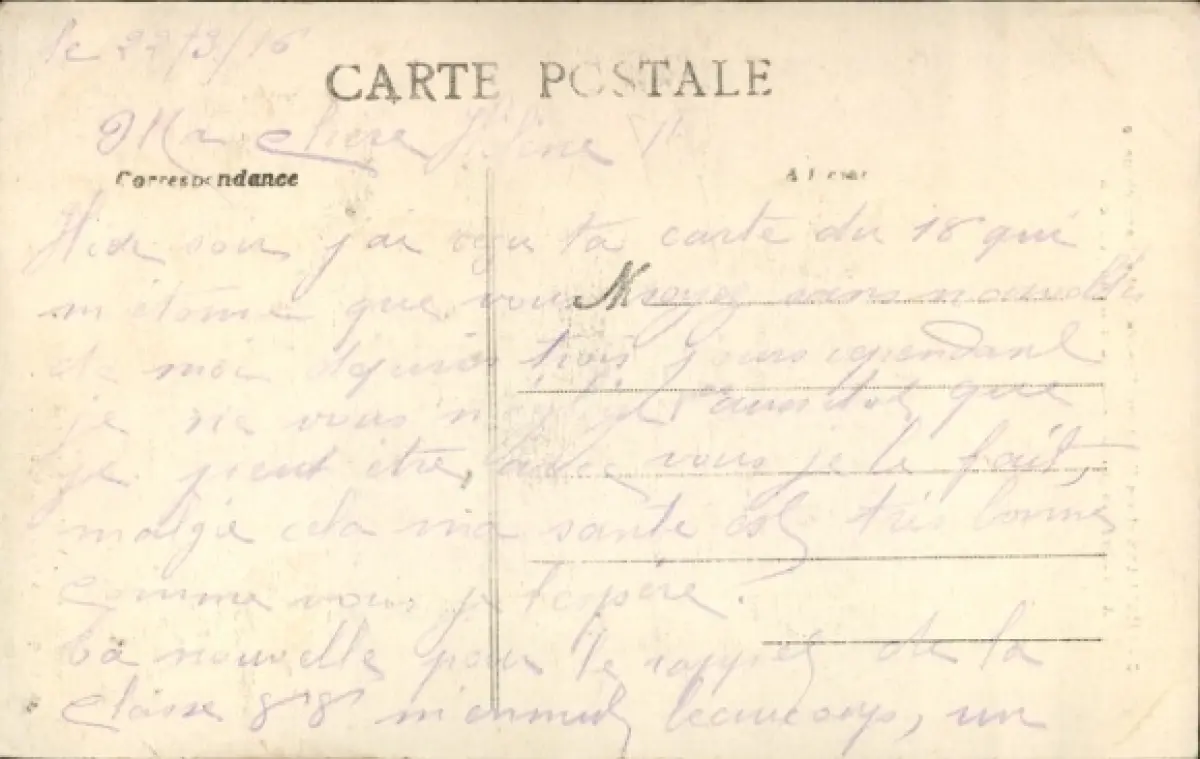 le 22/3/16
CARTE POSTALE
Ma chere
Correspondance
Hier soir j'ai reçu ta carte du 18 qui
m'étonne que vous soyez sans nouvelles
M
de moi depuis trois jours cependant
je ne vous néglige aussitot que
je peut être vous je le fait,
malgré cela ma santé est très bonne
comme vous je l'espère.
La nouvelle pour le rappel de la
classe 88 m'ennui beaucoup, un